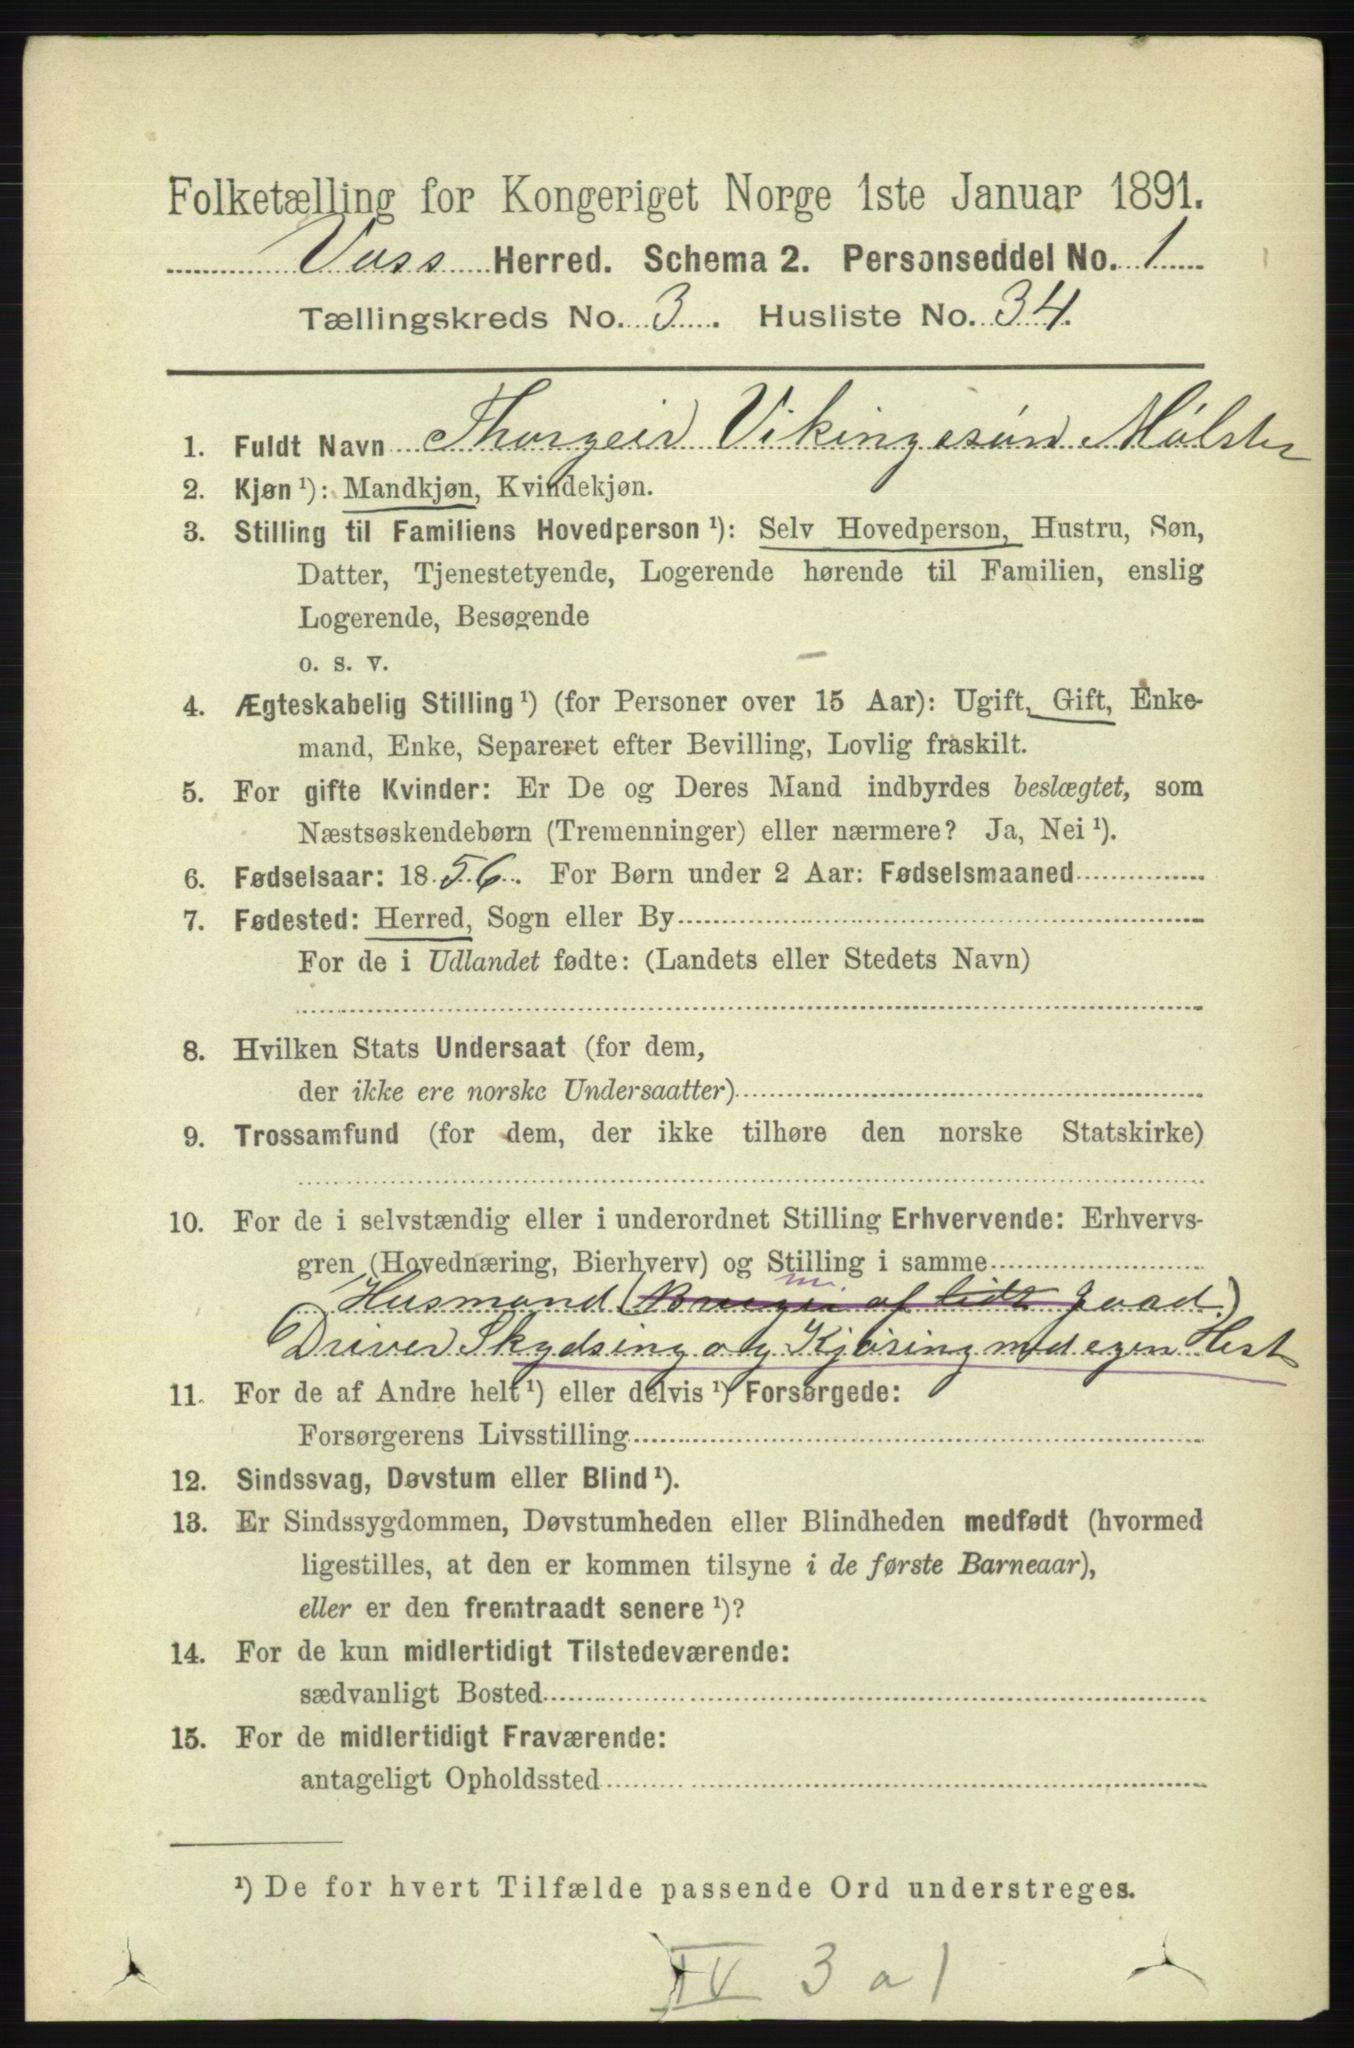 Folketælling for Kongeriget Norge 1ste Januar 1891.
Voss Herred. Schema 2. Personseddel No. 1
Tællingskreds No. 3. Husliste No. 34.
1. Fuldt Navn Thorgeir Vikingesøn Mølster
2. Kjøn ¹): Mandkjøn, Kvindekjøn.
3. Stilling til Familiens Hovedperson ¹): Selv Hovedperson, Hustru, Søn,
Datter, Tjenestetyende, Logerende hørende til Familien, enslig
Logerende, Besøgende
o. s. v.
4. Ægteskabelig Stilling ¹) (for Personer over 15 Aar): Ugift, Gift, Enke-
mand, Enke, Separeret efter Bevilling, Lovlig fraskilt.
5. For gifte Kvinder: Er De og Deres Mand indbyrdes beslægtet, som
Næstsøskendebørn (Tremenninger) eller nærmere? Ja, Nei ¹).
6. Fødselsaar: 1856. For Børn under 2 Aar: Fødselsmaaned
7. Fødested: Herred, Sogn eller By
For de i Udlandet fødte: (Landets eller Stedets Navn)
8. Hvilken Stats Undersaat (for dem,
der ikke ere norske Undersaatter)
9. Trossamfund (for dem, der ikke tilhøre den norske Statskirke)
10. For de i selvstændig eller i underordnet Stilling Erhvervende: Erhvervs-
gren (Hovednæring, Bierhverv) og Stilling i samme
m.
Husmand (Bruger af lidt Jord.)
Driver Skydsing og Kjøring med egen Hest
11. For de af Andre helt ¹) eller delvis ¹) Forsørgede:
Forsørgerens Livsstilling
12. Sindssvag, Døvstum eller Blind ¹).
13. Er Sindssygdommen, Døvstumheden eller Blindheden medfødt (hvormed
ligestilles, at den er kommen tilsyne i de første Barneaar),
eller er den fremtraadt senere ¹)?
14. For de kun midlertidigt Tilstedeværende:
sædvanligt Bosted
15. For de midlertidigt Fraværende:
antageligt Opholdssted
¹) De for hvert Tilfælde passende Ord understreges.
IV 3 a 1